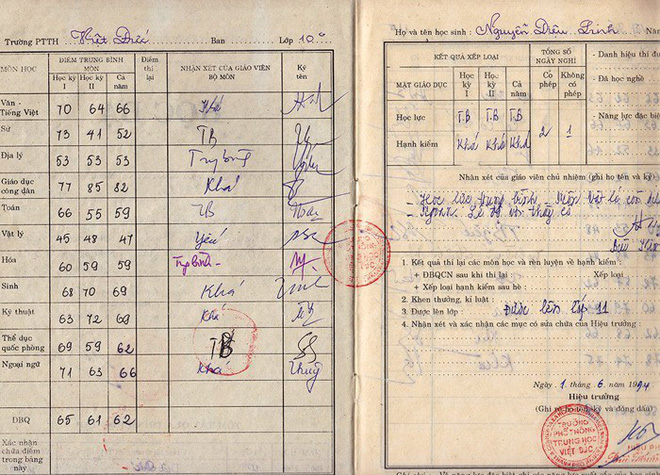 Trường PTTH Việt Đức Ban Lớp 10
MÔN HỌC
ĐIỂM TRUNG BÌNH MÔN
Học kỳ I
Học kỳ II
Cả năm
Điểm thi lại
NHẬN XÉT CỦA GIÁO VIÊN BỘ MÔN
Ký tên
Văn - Tiếng Việt 70 64 66 Khá
Sử 73 41 52 TB
Địa lý 53 53 53 Trung bình
Giáo dục công dân 77 85 82 Khá
Toán 66 55 59 TB
Vật lý 45 48 47 Yếu
Hóa 60 59 59 Trg bình
Sinh 68 70 69 Khá
Kỹ thuật 63 72 69 Khá
Thể dục quốc phòng 69 59 62 TB
Ngoại ngữ 71 63 66 Khá Thuý
ĐBQ 65 61 62
Xác nhận
chữa điểm
trong bảng
này
Họ và tên học sinh : Nguyễn Diệu Linh
KẾT QUẢ XẾP LOẠI
TỔNG SỐ NGÀY NGHỈ
MẶT GIÁO DỤC
Học kỳ I
Học kỳ II
Cả năm
Có phép
Không có phép
Học lực T.B T.B T.B
Hạnh kiểm Khá Khá Khá
2 1
- Danh hiệu thi đu
- Đã học nghề
- Năng lực đặc biệ
Nhận xét của giáo viên chủ nhiệm (ghi họ tên và ký)
- Học lực trung bình - Môn Vật lý còn
- Ngoan. Lễ độ với thầy cô
1. Kết quả thi lại các môn học và rèn luyện về hạnh kiểm :
+ ĐBQCN sau khi thi lại Xếp loại
+ Xếp loại hạnh kiểm sau hè :
2. Khen thưởng, kỉ luật :
3. Được lên lớp : Được lên lớp 11
4. Nhận xét và xác nhận các mục có sửa chữa của Hiệu trưởng :
Ngày 1 tháng 6 năm 1994
Hiệu trưởng
(Ghi rõ họ tên ký và đóng dấu)
TRƯỜNG
PHỔ THÔNG
TRUNG HỌC
VIỆT ĐỨC